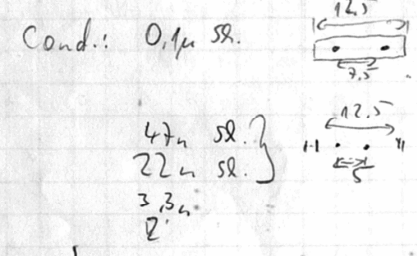 Cond.: 0,1μ sl.
12,5
7,5
47n sl.
22n sl.
12,5
5
3,3n